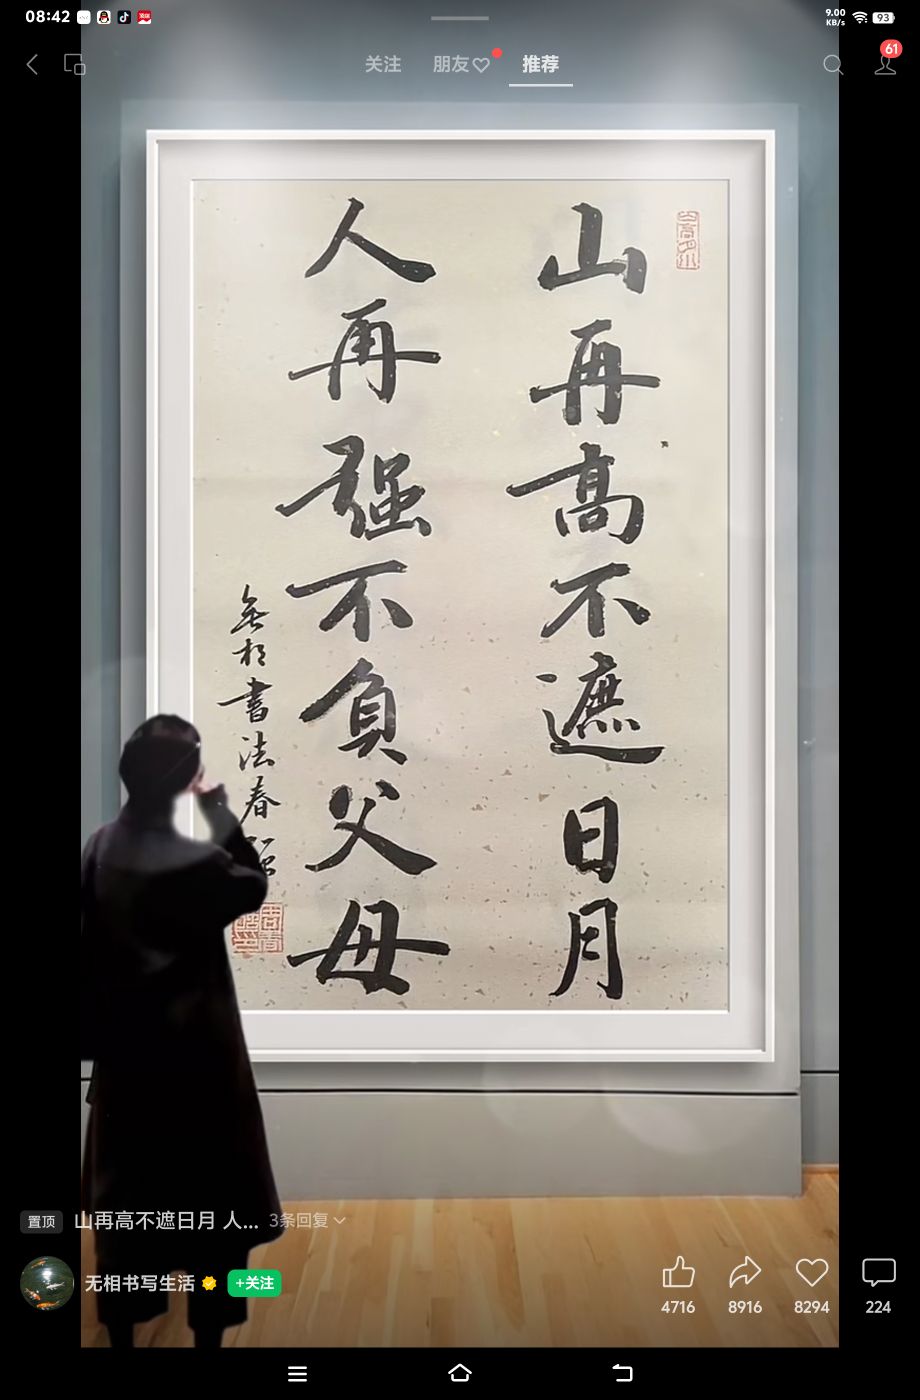 08:42
9.00
KB/s
93
关注
朋友
推荐
61
山再高不遮日月
人再强不負父母
無相書法春强
置顶
山再高不遮日月 人...
3条回复
无相书写生活
+关注
4716
8916
8294
224